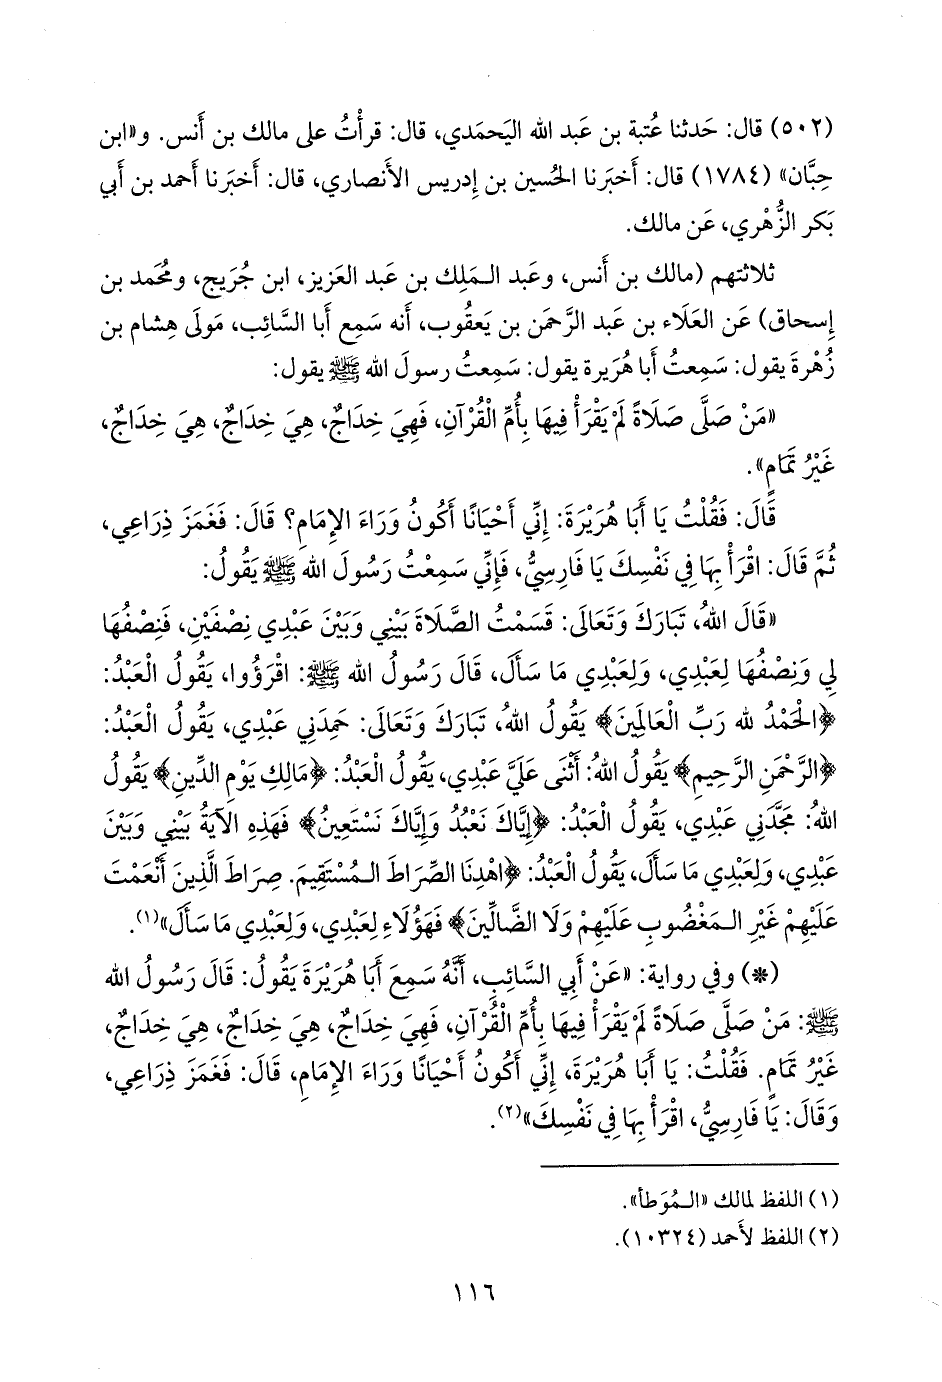 (٥٠٢) قال: حَدثنا عُتبة بن عَبد الله اليَحمَدي، قال: قرأْتُ على مالك بن أَنس. و«ابن
حِبَّان» (١٧٨٤) قال: أَخبَرنا الحُسين بن إِدريس الأَنصاري، قال: أَخبَرنا أَحمد بن أَبي
بَكر الزُّهْري، عَن مالك.
ثلاثتهم (مالك بن أَنس، وعَبد الـمَلِك بن عَبد العَزيز، ابن جُرَيج، ومُحَمد بن
إِسحاق) عَن العَلَاء بن عَبد الرَّحمَن بن يَعقُوب، أَنه سَمِع أَبا السَّائِب، مَولَى هِشام بن
زُهْرةَ يقول: سَمِعتُ أَبا هُرَيرة يقول: سَمِعتُ رسولَ الله ﷺ يقول:
«مَنْ صَلَّى صَلَاةً لَمْ يَقْرَأْ فِيهَا بِأُمِّ الْقُرْآنِ، فَهِيَ خِدَاجٌ، هِيَ خِدَاجٌ، هِيَ خِدَاجٌ،
غَيْرُ تَمَامٍ».
قَالَ: فَقُلْتُ يَا أَبَا هُرَيْرَةَ: إِنِّي أَحْيَانًا أَكُونُ وَرَاءَ الإِمَامِ؟ قَالَ: فَغَمَزَ ذِرَاعِي،
ثُمَّ قَالَ: اقْرَأْ بِهَا فِي نَفْسِكَ يَا فَارِسِيُّ، فَإِنِّي سَمِعْتُ رَسُولَ الله ﷺ يَقُولُ:
«قَالَ اللهُ، تَبَارَكَ وَتَعَالَى: قَسَمْتُ الصَّلَاةَ بَيْنِي وَبَيْنَ عَبْدِي نِصْفَيْنِ، فَنِصْفُهَا
لِي وَنِصْفُهَا لِعَبْدِي، وَلِعَبْدِي مَا سَأَلَ، قَالَ رَسُولُ الله ﷺ: اقْرَؤُوا، يَقُولُ الْعَبْدُ:
﴿الْحَمْدُ لله رَبِّ الْعَالَمِينَ﴾ يَقُولُ اللهُ، تَبَارَكَ وَتَعَالَى: حَمِدَنِي عَبْدِي، يَقُولُ الْعَبْدُ:
﴿الرَّحْمَنِ الرَّحِيمِ﴾ يَقُولُ اللهُ: أَثْنَى عَلَيَّ عَبْدِي، يَقُولُ الْعَبْدُ: ﴿مَالِكِ يَوْمِ الدِّينِ﴾ يَقُولُ
اللهُ: مَجَّدَنِي عَبْدِي، يَقُولُ الْعَبْدُ: ﴿إِيَّاكَ نَعْبُدُ وَإِيَّاكَ نَسْتَعِينُ﴾ فَهَذِهِ الآيَةُ بَيْنِي وَبَيْنَ
عَبْدِي، وَلِعَبْدِي مَا سَأَلَ، يَقُولُ الْعَبْدُ: ﴿اهْدِنَا الصِّرَاطَ الـمُسْتَقِيمَ. صِرَاطَ الَّذِينَ أَنْعَمْتَ
عَلَيْهِمْ غَيْرِ الـمَغْضُوبِ عَلَيْهِمْ وَلَا الضَّالِّينَ﴾ فَهَؤُلَاءِ لِعَبْدِي، وَلِعَبْدِي مَا سَأَلَ»(١).
(*) وفي رواية: «عَنْ أَبِي السَّائِبِ، أَنَّهُ سَمِعَ أَبَا هُرَيْرَةَ يَقُولُ: قَالَ رَسُولُ الله
ﷺ: مَنْ صَلَّى صَلَاةً لَمْ يَقْرَأْ فِيهَا بِأُمِّ الْقُرْآنِ، فَهِيَ خِدَاجٌ، هِيَ خِدَاجٌ، هِيَ خِدَاجٌ،
غَيْرُ تَمَامٍ. فَقُلْتُ: يَا أَبَا هُرَيْرَةَ، إِنِّي أَكُونُ أَحْيَانًا وَرَاءَ الإِمَامِ، قَالَ: فَغَمَزَ ذِرَاعِي،
وَقَالَ: يَا فَارِسِيُّ، اقْرَأْ بِهَا فِي نَفْسِكَ»(٢).
(١) اللفظ لمالك «الـمُوَطأ».
(٢) اللفظ لأَحمد (١٠٣٢٤).
١١٦